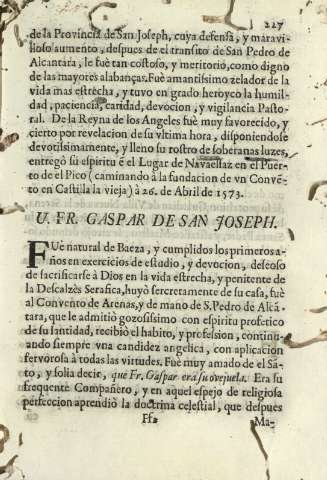 227
de la Provincia de San Joseph, cuya defensa, y maravi-
lloso aumento, despues de el transito de San Pedro de
Alcantara, le fuè tan costoso, y meritorio, como digno
de las mayores alabanças. Fuè amantissimo zelador de la
vida mas estrecha, y tuvo en grado heroyco la humil-
dad, paciencia, caridad, devocion, y vigilancia Pasto-
ral. De la Reyna de los Angeles fuè muy favorecido, y
cierto por revelacion de su vltima hora, disponiendose
devotissimamente, y lleno su rostro de soberanas luzes,
entregò su espiritu ẽ el Lugar de Navaellaz en el Puer-
to de el Pico (caminando à la fundacion de vn Convẽ-
to en Castilla la vieja) à 26. de Abril de 1573.
U. FR. GASPAR DE SAN JOSEPH.
FUè natural de Baeza, y cumplidos los primeros a-
ños en exercicios de estudio, y devocion, deseoso
de sacrificarse à Dios en la vida estrecha, y penitente de
la Descalzès Serafica, huyò sercretamente de su casa, fuè
al Convento de Arenas, y de mano de S. Pedro de Alcã-
tara, que le admitiò gozosissimo con espiritu profetico
de su santidad, recibiò el habito, y profession, continu-
ando siempre vna candidez angelica, con aplicacion
fervorosa à todas las virtudes. Fuè muy amado de el Sã-
to, y solia decir, que Fr. Gaspar era su ovejuela. Era su
frequente Compañero, y en aquel espejo de religiosa
perfeccion aprendiò la doctrina celestial, que despues
Ff2
Ma-